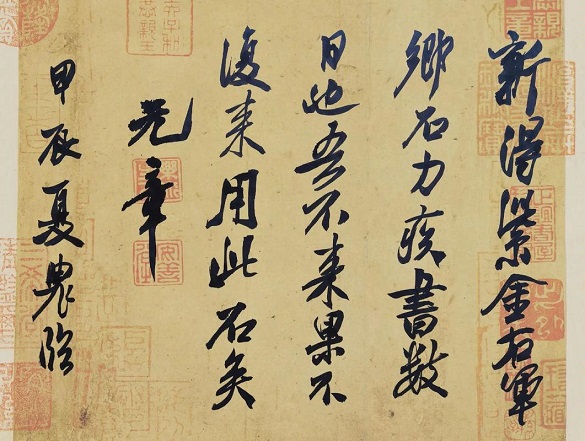 新得紫金右軍
鄉石力疾書數
日也吾不来果不
復来用此石矣
元章
甲辰夏臨